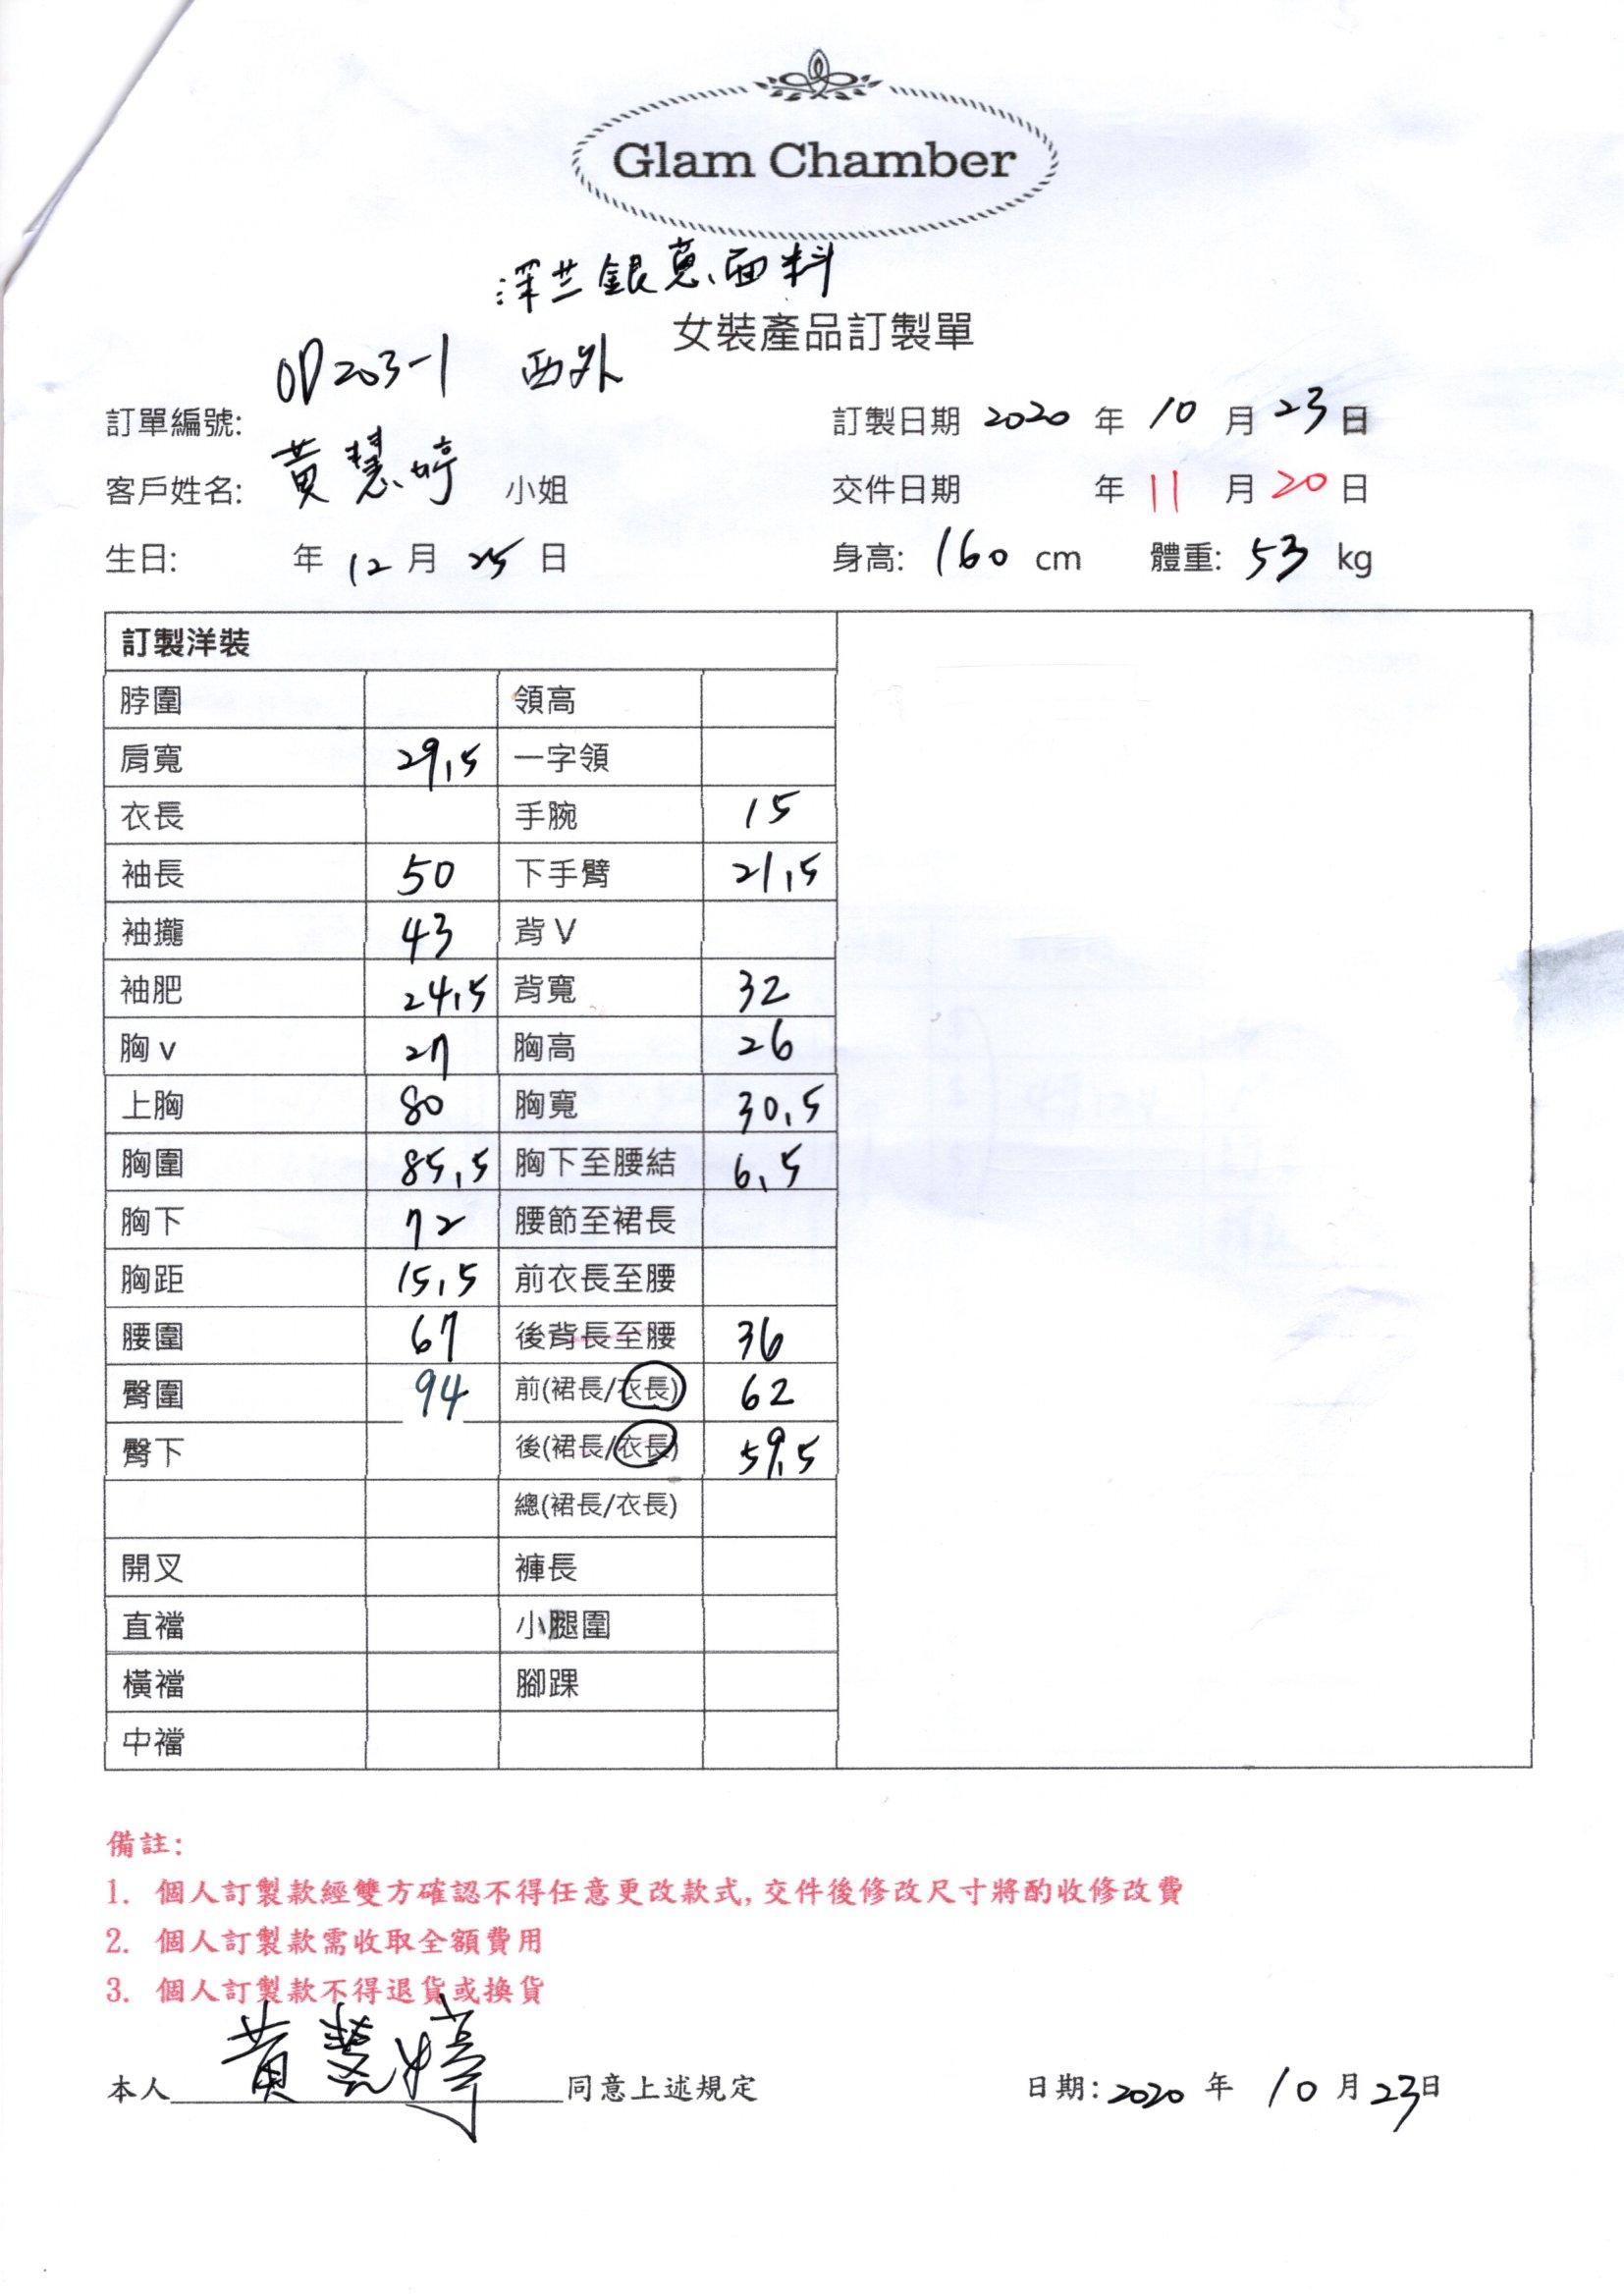 Glam Chamber
深兰銀蔥面料
女裝產品訂製單
訂單編號: OD203-1 西外 訂製日期 2020 年 10 月 23 日
客戶姓名: 黃慧婷 小姐 交件日期 年 11 月 20 日
生日: 年 12 月 25 日 身高: 160 cm 體重: 53 kg
訂製洋裝
脖圍 領高
肩寬 29.5 一字領
衣長 手腕 15
袖長 50 下手臂 21.5
袖攏 43 背 V
袖肥 24.5 背寬 32
胸 v 27 胸高 26
上胸 80 胸寬 30.5
胸圍 85.5 胸下至腰結 6.5
胸下 72 腰節至裙長
胸距 15.5 前衣長至腰
腰圍 67 後背長至腰 36
臀圍 94 前(裙長/衣長) 62
臀下 後(裙長/衣長) 59.5
總(裙長/衣長)
開叉 褲長
直襠 小腿圍
橫襠 腳踝
中襠
備註:
1. 個人訂製款經雙方確認不得任意更改款式,交件後修改尺寸將酌收修改費
2. 個人訂製款需收取全額費用
3. 個人訂製款不得退貨或換貨
本人 黃慧婷 同意上述規定 日期: 2020 年 10 月 23 日